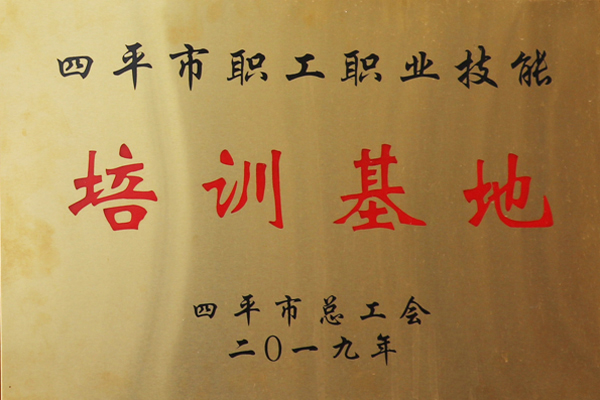 四平市职工职业技能
培训基地
四平市总工会
二〇一九年